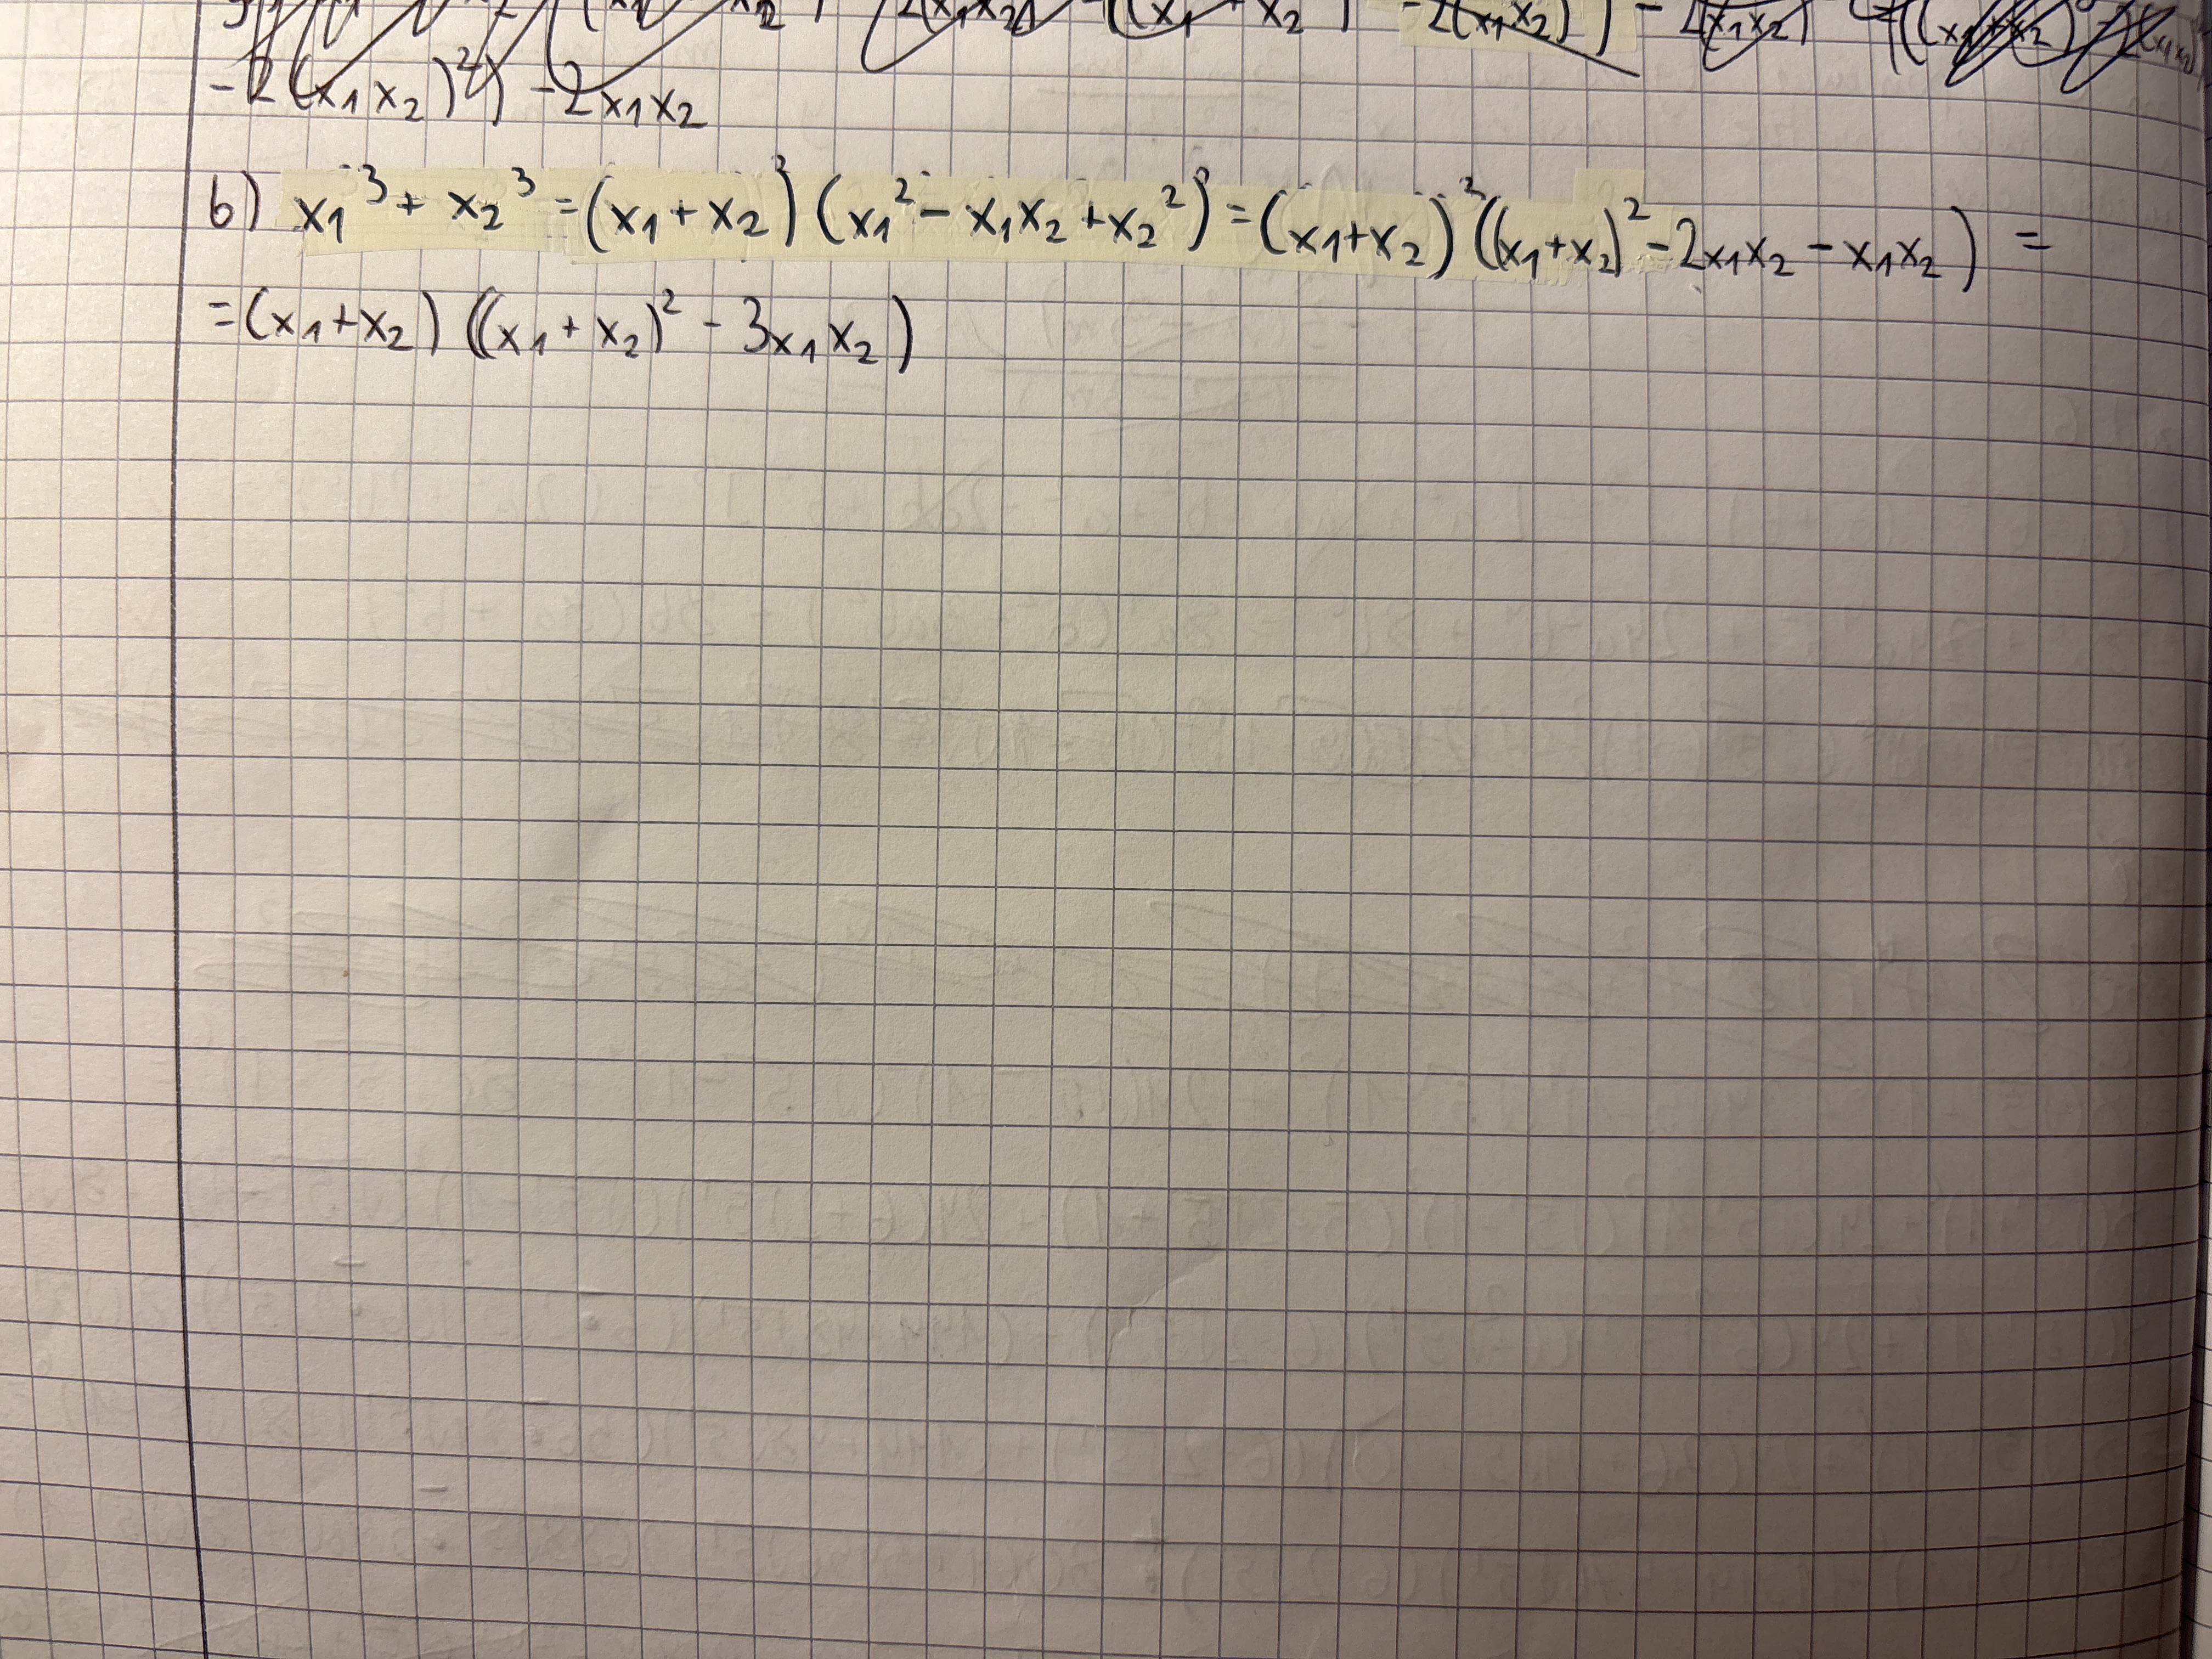 - 2(x₁x₂)²) - 2x₁x₂
b) x₁³ + x₂³ = (x₁+x₂) (x₁² - x₁x₂ + x₂²) = (x₁+x₂) ((x₁+x₂)² - 2x₁x₂ - x₁x₂) =
= (x₁+x₂) ((x₁+x₂)² - 3x₁x₂)